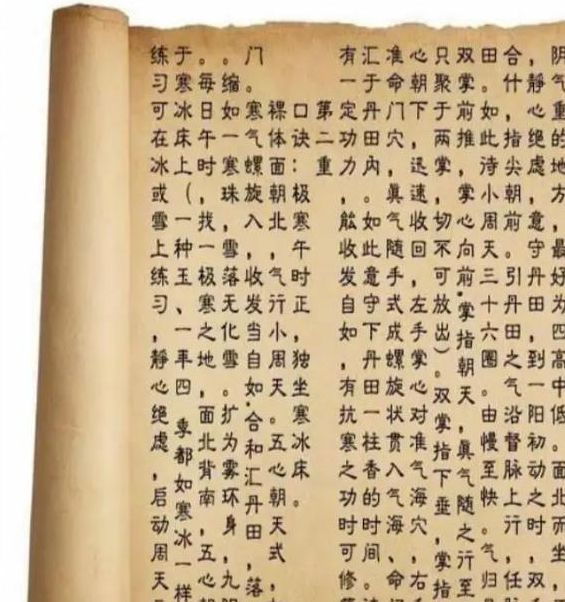 阴气重的地方，最好为四高中低。面北而坐，
，静心绝虑，意守丹田，到一阳初动之时，双
合什，指尖朝前。引丹田之气沿督脉上行，任脉
田。如此待小周天。三十六圈。由慢至快。气归
双掌前推，掌心向前，掌指朝天，眞气随之行至
只聚于两掌，切不可放出）。双掌指下垂，掌指
心朝下，迅速收回，左手掌心对准气海穴，右手
准命门穴，眞气随手式成螺旋状贯入气海、命
汇于丹田内。如此意守下丹田一柱香的时间。
有一定功力，能收发自如，有抗寒之功时可修
第二重
口诀：极寒午时正，独坐寒冰床。
裸体面朝北，气行小周天。五心朝天式，
门。寒气螺旋入，收发当自如.合和汇丹田，落
。缩如一寒珠，雪落无化雪。扩为雾环身，九
。每日午时，找一极寒之地，面北背南，五心朝
于寒冰床上（一种玉、一年四季都如寒冰一样
练习可在冰或雪上练习，静心绝虑，启动周天